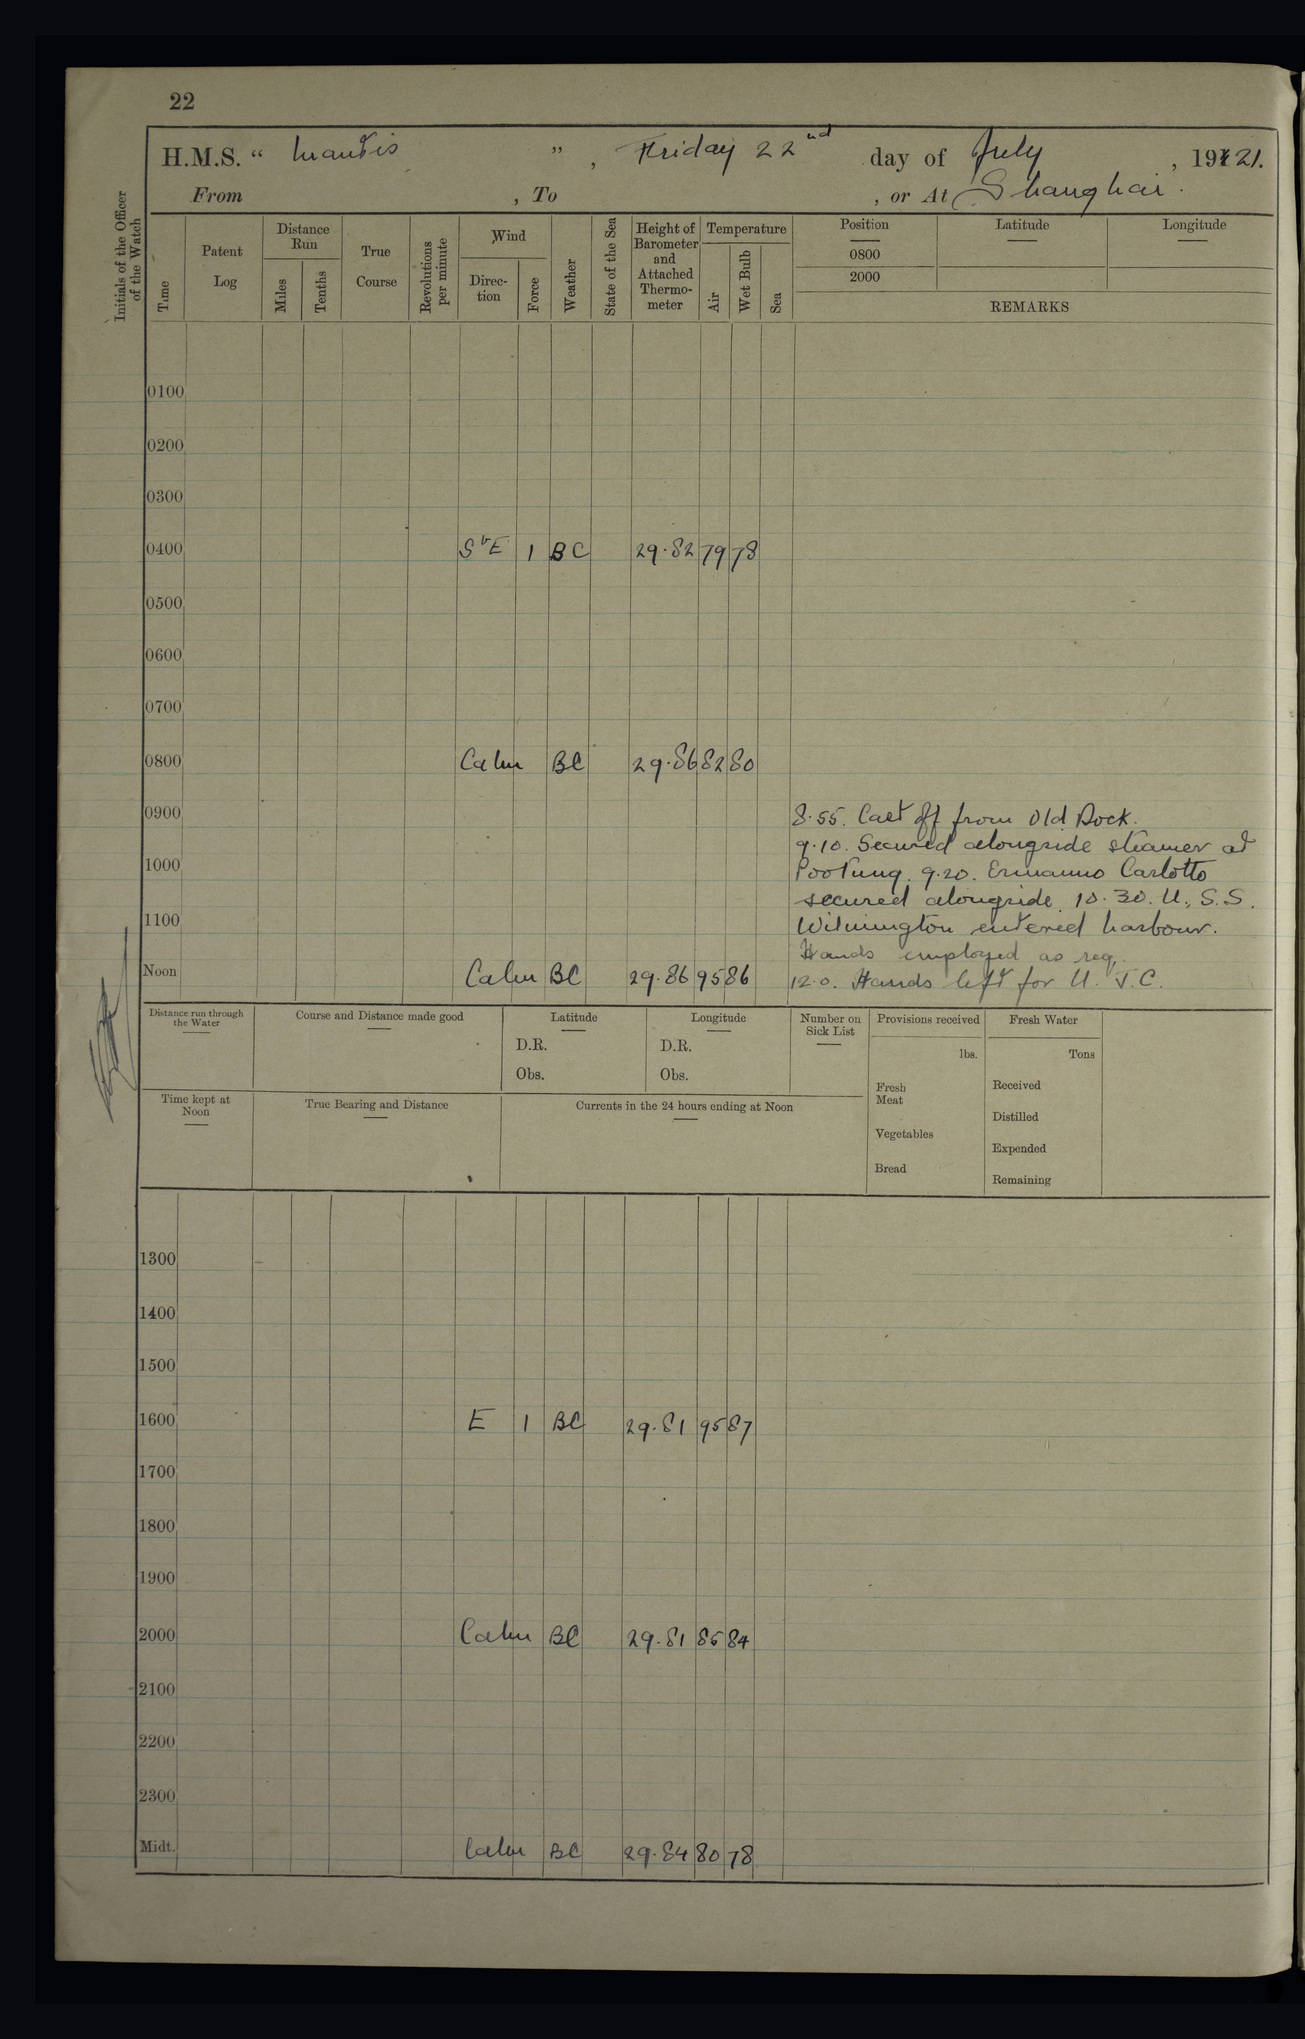 22
H.M.S. “ Mantis ” , Friday 22nd day of July , 1921.
From , To , or At Shanghai.
Initials of the Officer of the Watch
Time
Patent Log
Distance Run
Miles
Tenths
True Course
Revolutions per minute
Wind
Direc-tion
Force
Weather
State of the Sea
Height of Barometer and Attached Thermo-meter
Temperature
Air
Wet Bulb
Sea
Position Latitude Longitude
0800
2000
REMARKS
0100
0200
0300
0400 SbE 1 BC 29.82 79 78
0500
0600
0700
0800 Calm BC 29.86 82 80
0900 8.55. Cast off from Old Dock.
9.10. Secured alongside steamer at
1000 Pootung. 9.20. Ermanno Carlotto
secured alongside. 10.30. U.S.S.
1100 Wilmington entered harbour.
Hands employed as req.
Noon Calm BC 29.86 95 86 12.0. Hands left for U. J. C.
Distance run through the Water
Course and Distance made good
Latitude
D.R.
Obs.
Longitude
D.R.
Obs.
Number on Sick List
Provisions received
lbs.
Fresh Meat
Vegetables
Bread
Fresh Water
Tons
Received
Distilled
Expended
Remaining
Time kept at Noon
True Bearing and Distance
Currents in the 24 hours ending at Noon
1300
1400
1500
1600 E 1 BC 29.81 95 87
1700
1800
1900
2000 Calm BC 29.81 85 84
2100
2200
2300
Midt. Calm BC 29.84 80 78